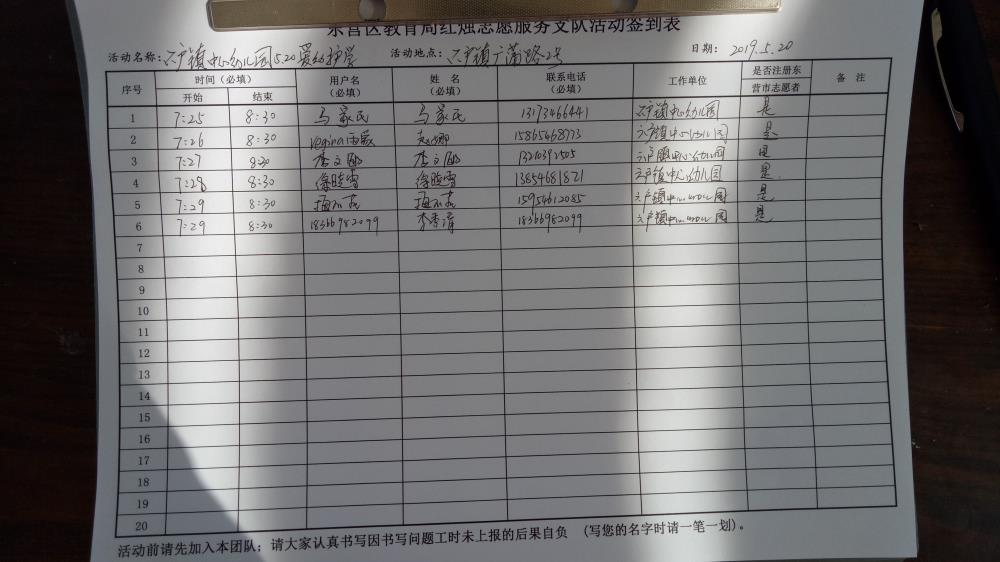 东营区教育局红烛志愿服务支队活动签到表
活动名称:六户镇中心幼儿园5.20爱幼护学 活动地点:六户镇广蒲路2号 日期:2019.5.20
序号 时间(必填) 用户名(必填) 姓名(必填) 联系电话(必填) 工作单位 是否注册东营市志愿者 备注
开始 结束
1 7:25 8:30 马家民 马家民 13173466441 六户镇中心幼儿园 是
2 7:26 8:30 15865468773 六户镇中心幼儿园 是
3 7:27 8:30 李文 李文 13210392505 六户镇中心幼儿园 是
4 7:28 8:30 徐晓雪 徐晓雪 13654681821 六户镇中心幼儿园 是
5 7:29 8:30 15954612085 六户镇中心幼儿园 是
6 7:29 8:30 18366982099 李香清 18366982099 六户镇中心幼儿园 是
7
8
9
10
11
12
13
14
15
16
17
18
19
20
活动前请先加入本团队;请大家认真书写因书写问题工时未上报的后果自负 (写您的名字时请一笔一划)。